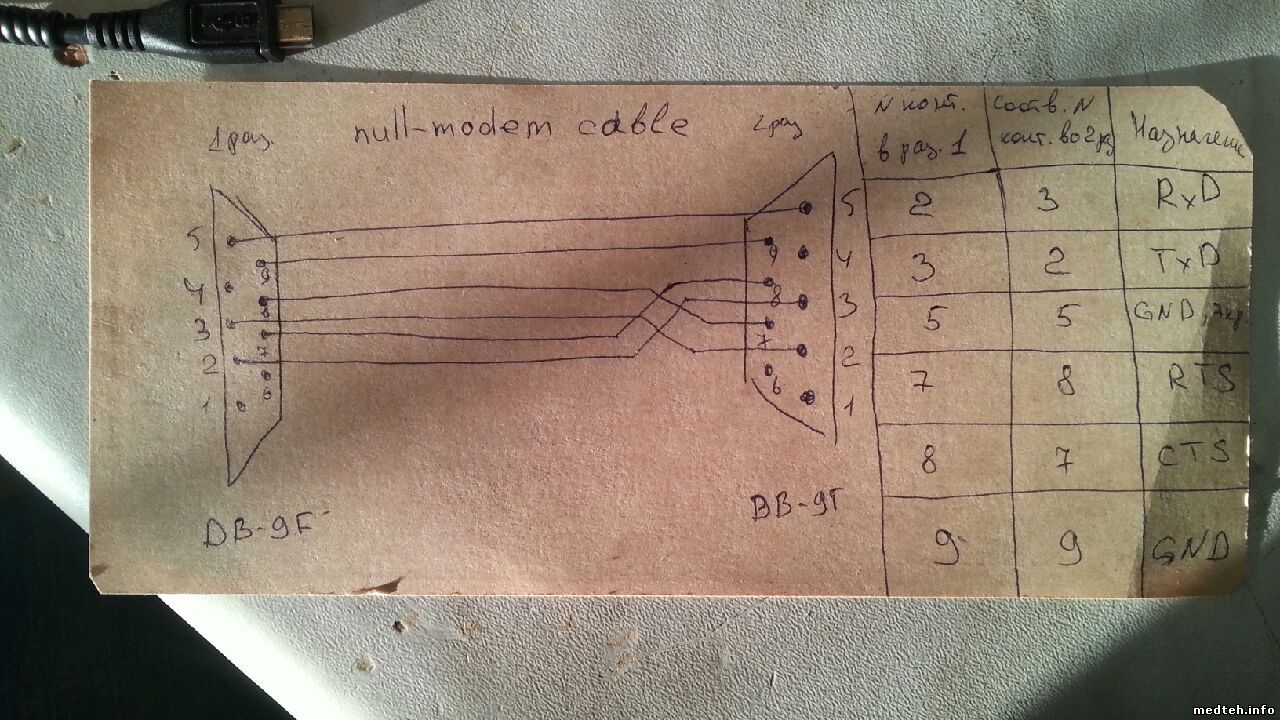 1 раз.
null-modem cable
2 раз
5
4
3
2
1
9
8
7
6
9
8
7
6
5
4
3
2
1
DB-9F
DB-9F
N конт. в раз. 1 | Соотв. N конт. во 2 раз | Назначение
2 3 RxD
3 2 TxD
5 5 GND
7 8 RTS
8 7 CTS
9 9 GND
medteh.info